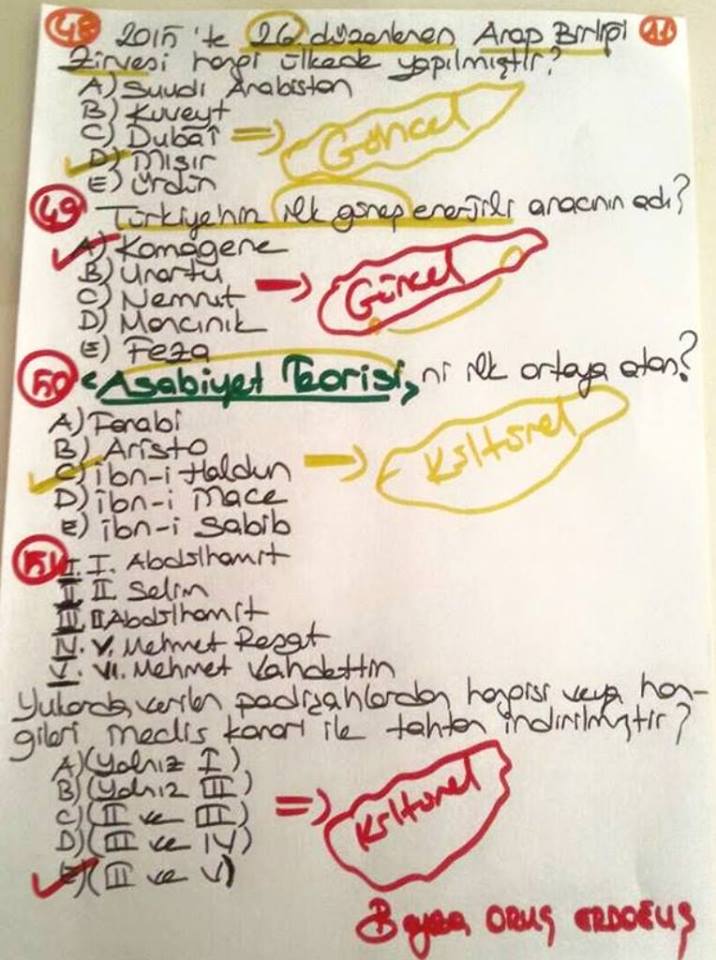 48 2015'te 26. düzenlenen Arap Birliği 11
Zirvesi hangi ülkede yapılmıştır?
A) Suudi Arabistan
B) Kuveyt
C) Dubai => Güncel
D) Mısır
E) Ürdün
49 Türkiye'nin ilk güneş enerjili aracının adı?
A) Komagene
B) Urartu
C) Nemrut → Güncel
D) Mancınık
E) Feza
50 "Asabiyet Teorisi"ni ilk ortaya atan?
A) Farabi
B) Aristo
C) ibn-i Haldun → Kültürel
D) ibn-i Mace
E) ibn-i Sabib
51 I. I. Abdülhamit
II II Selim
III II Abdülhamit
IV. V. Mehmet Reşat
V. VI. Mehmet Vahdettin
Yukarda verilen padişahlardan hangisi veya han-
gileri meclis kararı ile tahttan indirilmiştir?
A) (Yalnız I)
B) (Yalnız III)
C) (II ve III) => Kültürel
D) (III ve IV)
E) (II ve V)
Beyza ORUÇ ERDOĞUŞ